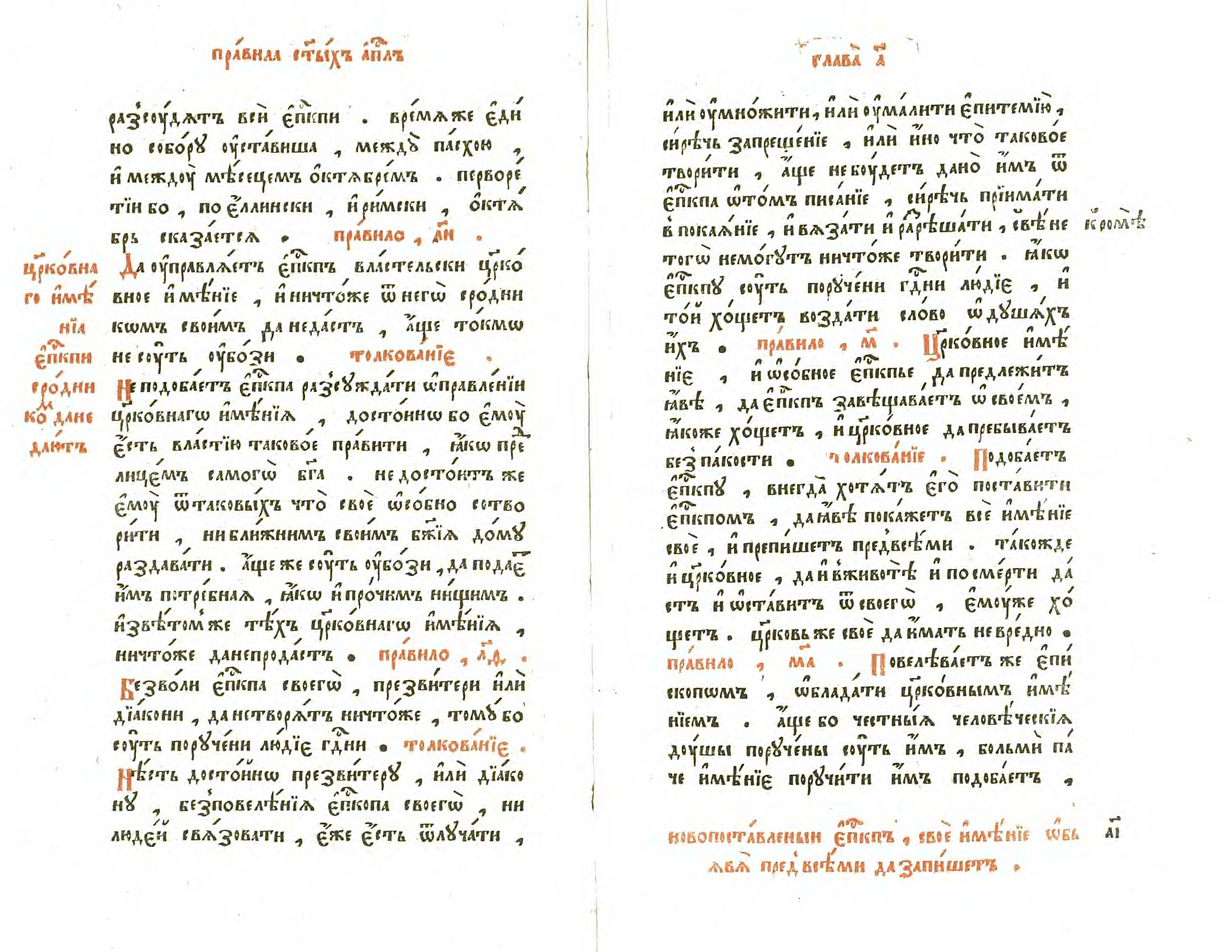 пра́вила ст҃ы́хъ а҆пл҃ъ
разсꙋ́дѧтъ всѝ є҆пⷭ҇кпи . вре́мѧже є҆ди
но собо́рꙋ оу҆ста́виша , междꙋ̀ па́схою ,
и҆ междоу̀ мѣ́сецемъ ѻ҆ктѧ́бремъ . перворе́
тїи бо , по є҆́ллински , и҆ри́мски , ѻ҆ктѧ́
брь сказа́етсѧ . пра́вило , л҃и .
Да оу҆правлѧ́етъ є҆пⷭ҇кпъ вла́стельски цр҃ко́
вное и҆мѣ́нїе , и҆ничто́же ѿнегѡ̀ сро́дни
кѡмъ свои̑мъ да неда́стъ , а҆́ще то́кмѡ
не соу́ть оу҆бо́зи . толкова́нїе .
Не подоба́етъ є҆пⷭ҇кпа разсꙋжда́ти ѡ҆правле́нїи
цр҃ко́внагѡ и҆мѣ́нїѧ , досто́йнѡ бо є҆моу̀
є҆́сть вла́стїю таково́е пра́вити , ꙗ҆́кѡ пре
лице́мъ самогѡ̀ бг҃а . не досто́итъ же
є҆моу̀ ѿтаковы́хъ что̀ своѐ ѡ҆со́бно сотво
ри́ти , ни бли́жнимъ свои́мъ бж҃їѧ до́мꙋ
раздава́ти . а҆́ще же соу́ть оу҆бо́зи , да подае҆
и҆̀мъ потре́бнаѧ , ꙗ҆́кѡ и҆про́чимъ ни́щимъ .
и҆звѣ́томже тѣ́хъ цр҃ко́внагѡ и҆мѣ́нїѧ ,
ничто́же данепрода́стъ . пра́вило , л҃ѳ .
Безво́ли є҆пⷭ҇кпа своегѡ̀ , презви́тери и҆лѝ
дїа́кони , да нетворѧ́тъ ничто́же , томꙋ̀ бо
соу́ть порꙋче́ни лю́дїе гдⷭ҇ни . толкова́нїе .
Нѣ́сть досто́йнѡ презви́терꙋ , и҆́ли дїа́ко
нꙋ , безповелѣ́нїѧ є҆пⷭ҇копа своегѡ̀ , ни
люде́й свѧ́зовати , є҆́же є҆́сть ѿлꙋча́ти ,
цр҃ко́вна
го и҆мѣ́
нїѧ
є҆пⷭ҇кпи
сро́дни
ко́ⷨ дане
даю́тъ
глава̀ а҃
и҆лѝ оу҆мно́жити , и҆лѝ оу҆ма́лити є҆питемїю̀ ,
си́рѣчь запреще́нїе , и҆лѝ и҆́но что̀ таково́е
твори́ти , а҆́ще не бꙋ́детъ дано̀ и҆́мъ ѿ
є҆пⷭ҇кпа ѡ҆то́мъ писа́нїе , си́рѣчь прїима́ти
в покаѧ́нїе , и҆вѧза́ти и҆ раꙁрѣша́ти , свѣ́не
тогѡ̀ немо́гꙋтъ ничто́же твори́ти . ꙗ҆́кѡ
є҆пⷭ҇кпꙋ соу́ть порꙋче́ни гдⷭ҇ни лю́дїе , и҆
то́й хо́щетъ возда́ти сло́во ѡ҆ дꙋша́хъ
и҆́хъ . пра́вило , м҃ . Цр҃ко́вное и҆мѣ́
нїе , и҆ ѡ҆со́бное є҆пⷭ҇кпье да предлежи́тъ
ꙗ҆́вѣ , да є҆пⷭ҇кпъ завѣщава́етъ ѡ҆ свое́мъ ,
ꙗ҆́коже хо́щетъ , и҆ цр҃ко́вное да пребыва́етъ
безпа́кости . толкова́нїе . Подоба́етъ
є҆пⷭ҇кпꙋ , внегда̀ хотѧ́тъ є҆го̀ поста́вити
є҆пⷭ҇кпомъ , да ꙗ҆́вѣ пока́жетъ всѐ и҆мѣ́нїе
своѐ , и҆ препи́шетъ предвсѣ́ми . та́кожде
и҆ цр҃ко́вное , да и҆ в животѣ̀ и҆ посме́рти да́
стъ и҆ ѡ҆ста́витъ ѿ своегѡ̀ , є҆мꙋ́же хо́
щетъ . цр҃ковь же своѐ да и҆́мать невре́дно .
пра́вило , м҃а . Повелѣва́етъ же є҆пи́
скопѡмъ , ѡ҆блада́ти цр҃ко́внымъ и҆мѣ́
нїемъ . а҆́ще бо честны́ѧ человѣ́ческїѧ
доу́шы порꙋче́ны соу́ть и҆̀мъ , больмѝ па́
че и҆мѣ́нїе порꙋчи́ти и҆̀мъ подоба́етъ ,
кромѣ̀
новопоста́вленыи є҆пⷭ҇кпъ , своѐ и҆мѣ́нїе ѡ҆бь
ѧ҆вѧ̀ предвсѣ́ми да запи́шетъ .
а҃і